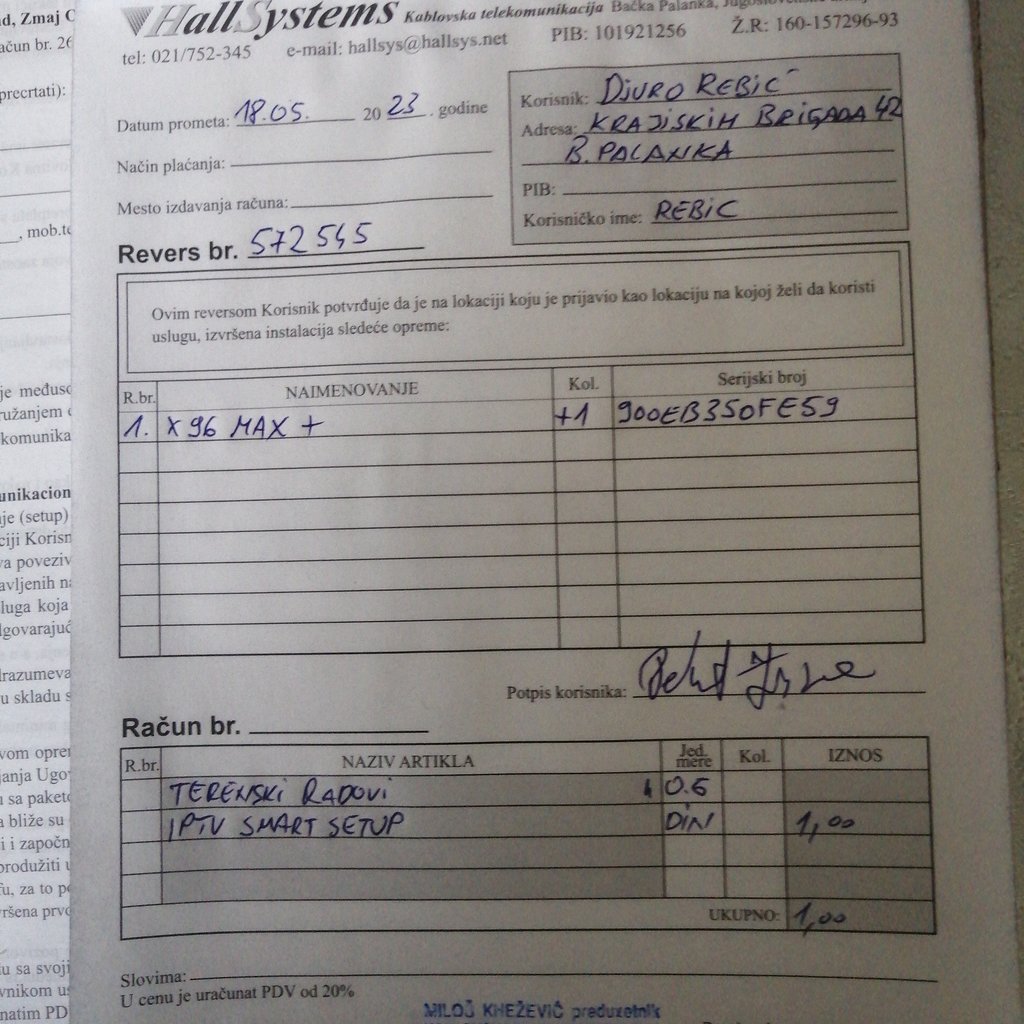 HallSystems Kablovska telekomunikacija Bačka Palanka,
tel: 021/752-345 e-mail: hallsys@hallsys.net PIB: 101921256 Ž.R: 160-157296-93
Datum prometa: 18.05. 2023. godine
Način plaćanja:
Mesto izdavanja računa:
Korisnik: DJURO REBIĆ
Adresa: KRAJISKIH BRIGADA 42
B. PALANKA
PIB:
Korisničko ime: REBIC
Revers br. 572545
Ovim reversom Korisnik potvrđuje da je na lokaciji koju je prijavio kao lokaciju na kojoj želi da koristi
uslugu, izvršena instalacija sledeće opreme:
R.br. NAIMENOVANJE Kol. Serijski broj
1. X96 MAX + +1 900EB350FE59
Potpis korisnika:
Račun br.
R.br. NAZIV ARTIKLA Jed. mere Kol. IZNOS
TERENSKI RADOVI 0.6
IPTV SMART SETUP DIN 1,00
UKUPNO: 1,00
Slovima:
U cenu je uračunat PDV od 20%
MILOŠ KNEŽEVIĆ preduzetnik
ad, Zmaj
ačun br. 26
precrtati):
, mob.te
je međuso
ružanjem
komunika
unikacion
je (setup)
ciji Korisn
va poveziv
avljenih na
luga koja
lgovarajuć
drazumeva
u skladu s
vom opre
anja Ugo
sa paket
a bliže su
i i započn
produžiti
fu, za to p
ršena prvo
u sa svoji
vnikom us
natim PD